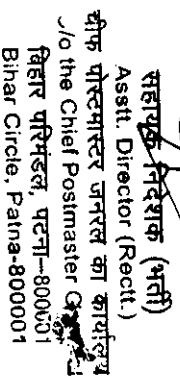 सहायक निदेशक (भर्ती)
Asstt. Director (Rectt.)
चीफ पोस्टमास्टर जनरल का कार्यालय
/o the Chief Postmaster G
बिहार परिमंडल, पटना-800001
Bihar Circle, Patna-800001